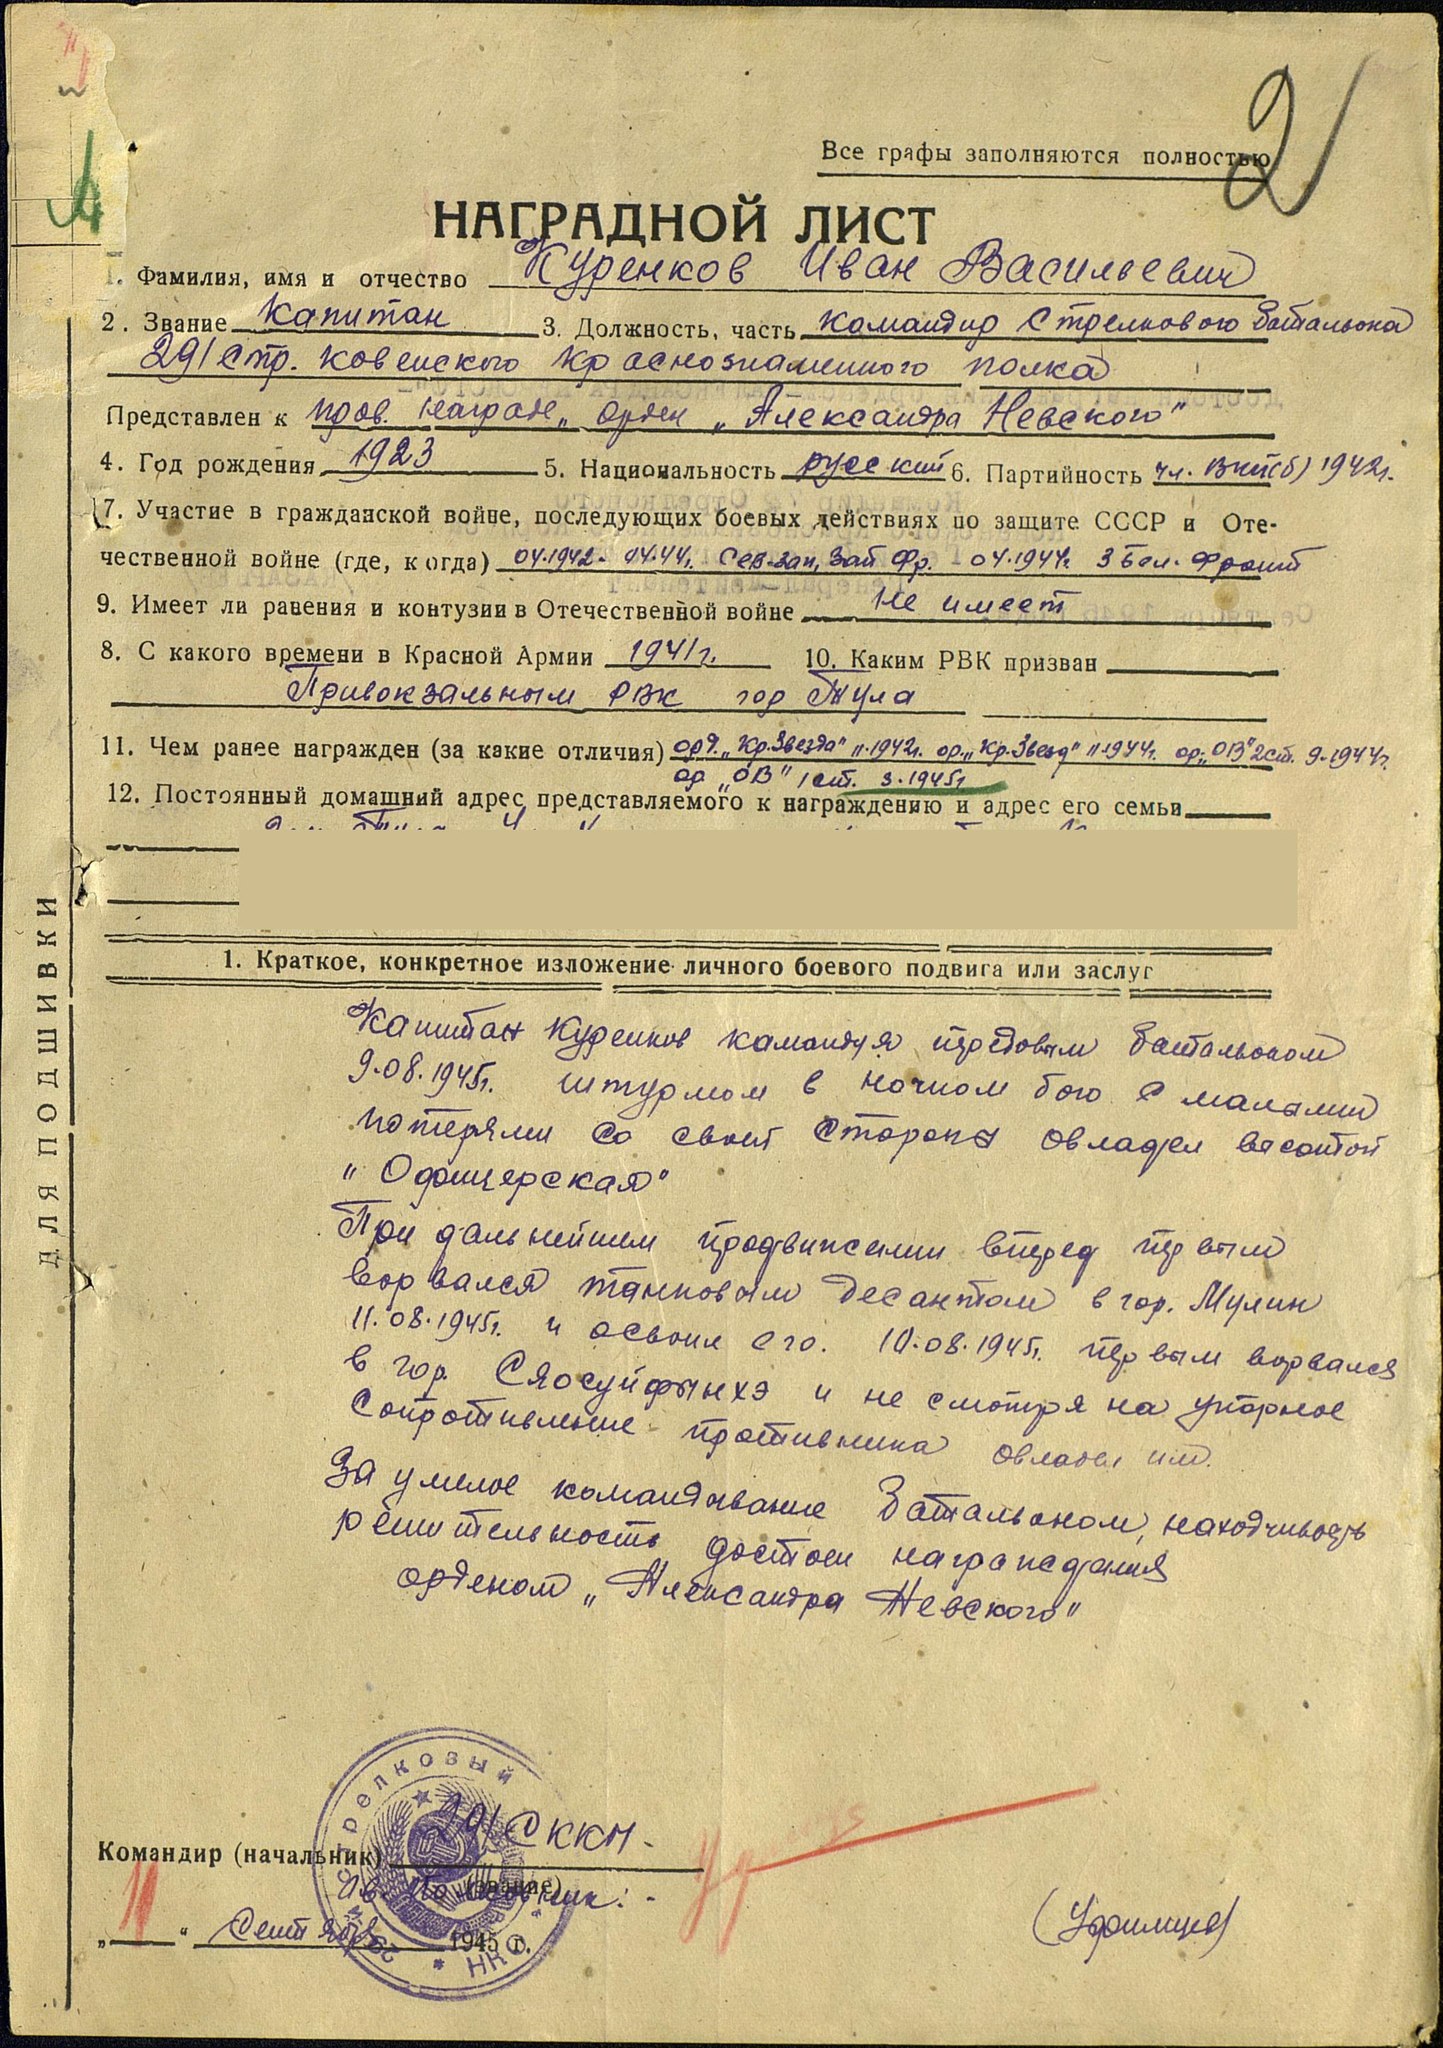 2
Все графы заполняются полностью
НАГРАДНОЙ ЛИСТ
1. Фамилия, имя и отчество Куренков Иван Васильевич
2. Звание Капитан 3. Должность, часть командир стрелкового батальона
291 стр. ковенского краснознаменного полка
Представлен к прав. награде „ орден „Александра Невского"
4. Год рождения 1923 5. Национальность русский 6. Партийность чл. ВКП(б) 1942г.
7. Участие в гражданской войне, последующих боевых действиях по защите СССР и Оте-
чественной войне (где, когда) 04.1942- 04.44г. Сев-зап, Зап Фр. 04.1944г. 3 Бел. Фронт
9. Имеет ли ранения и контузии в Отечественной войне Не имеет
8. С какого времени в Красной Армии 1941г. 10. Каким РВК призван
Привокзальным РВК гор Тула
11. Чем ранее награжден (за какие отличия) орд. „Кр.Звезда" 11.1942г. ор. „Кр.Звезд" 11.1944г. ор. „ОВ" 2 ст. 9.1944г.
ор „ОВ" 1 ст. 3.1945г
12. Постоянный домашний адрес представляемого к награждению и адрес его семьи
1. Краткое, конкретное изложение личного боевого подвига или заслуг
Капитан Куренков командуя передовым батальоном
9.08.1945г. штурмом в ночном бою с малыми
потерями со своей стороны овладел высотой
„Офицерская"
При дальнейшем продвижении вперед первым
ворвался танковым десантом в гор. Мулин
11.08.1945г. и освоил его. 10.08.1945г. первым ворвался
в гор. Сяосуйфынхэ и не смотря на упорное
сопротивление противника овладел им.
За умелое командование батальоном, находчивость
решительность достоин награждения
орденом „Александра Невского"
Командир (начальник) 291 СККП -
(звание)
Подполковник: -
„11" Сентября 1945 г.
СТРЕЛКОВЫЙ
НКО
ДЛЯ ПОДШИВКИ